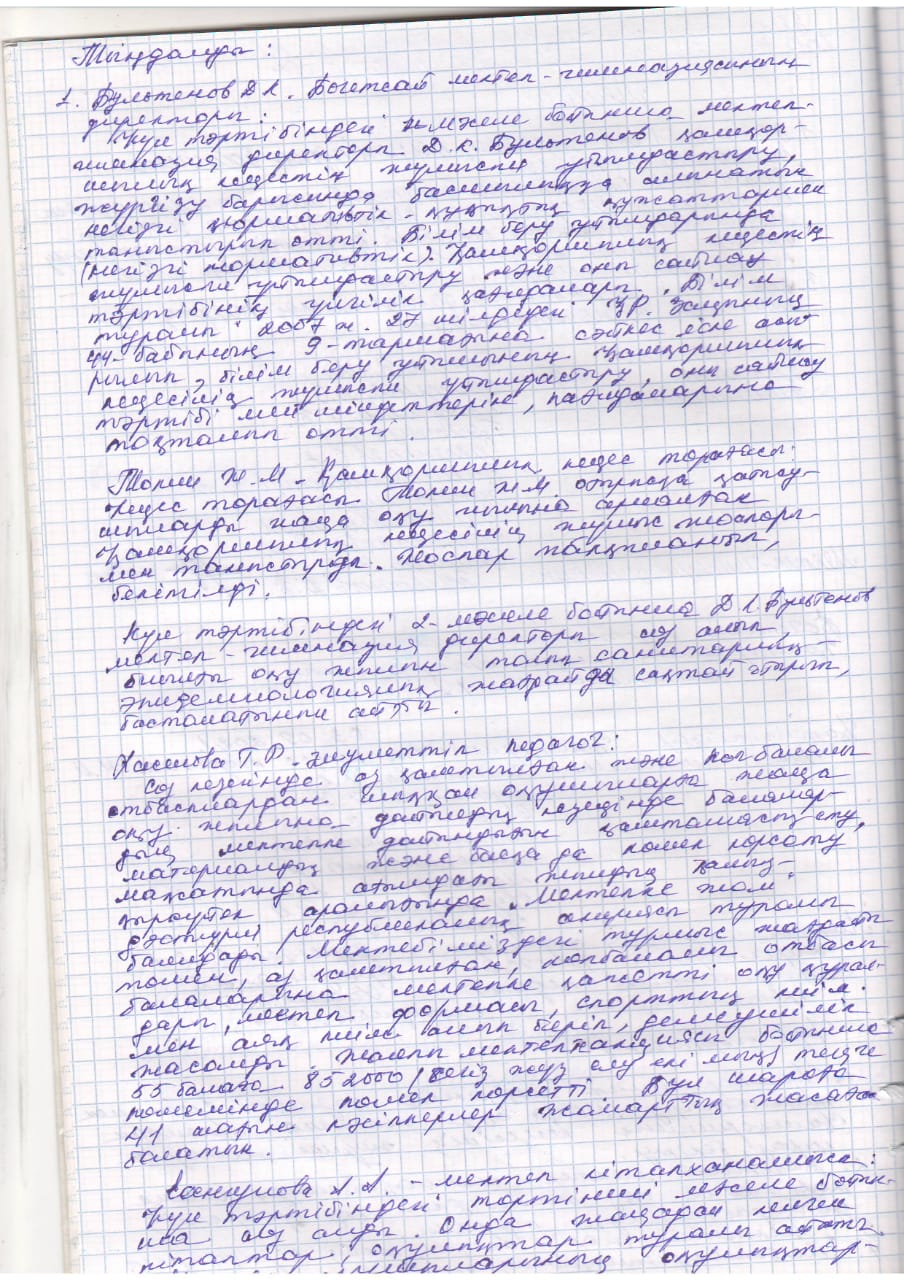 Тыңдалды:
1. Бультенов Д.К. Бөгетсай мектеп-гимназиясының
директоры:
Күн тәртібіндегі 1-мәселе бойынша мектеп-
гимназия директоры Д.К. Бультенов қамқор-
шылық кеңестің жұмысын ұйымдастыру,
жүргізу барысында басшылыққа алынатын
негізгі нормативтік-құқықтық құжаттармен
таныстырып өтті. Білім беру ұйымдарында
(негізгі нормативтік). Қамқоршылық кеңестің
жұмысын ұйымдастыру және оны сайлау
тәртібінің үлгілік қағидалары. Білім
туралы 2007 ж. 27 шілдедегі ҚР. Заңының
44-бабының 9-тармағына сәйкес іске асы-
рылып, білім беру ұйымының Қамқоршылық
кеңесінің жұмысын ұйымдастыру, оны сайлау
тәртібі мен міндеттеріне, қағидаларына
тоқталып өтті.
Н.М - Қамқоршылық кеңес төрағасы.
Кеңес төрағасы Н.М отырысқа қатысу-
шыларды жаңа оқу жылына арналған
Қамқоршылық кеңесінің жұмыс жоспары-
мен таныстырды. Жоспар талқыланып,
бекітілді.
Күн тәртібіндегі 2-мәселе бойынша Д.К. Бультенов
мектеп-гимназия директоры сөз алып,
биылғы оқу жылын толық санитарлық-
эпидемиологиялық жағдайды сақтай отырып,
бастағатынын айтты.
Т.Р. - әлеуметтік педагог:
Сөз кезегінде аз қамтылған және көп балалы
отбасылардан шыққан оқушыларға жаңа
оқу жылына дайындық кезеңінде балалар-
дың мектепке дайындығын қамтамасыз ету,
материалдық және басқа да көмек көрсету,
мақсатында ағымдағы жылдың
аралығында. "Мектепке жол"
дәстүрлі республикалық акциясы туралы
баяндады. Мектебіміздегі тұрмыс жағдайы
төмен, аз қамтылған, көпбалалы отбасы
балаларына мектепке қажетті оқу құрал-
дары, мектеп формасы, спорттық киім.
мен аяқ киім алып беріп, демеушілік
жасалды. Жалпы мектеп акциясы бойынша
55 балаға 852000 (сегіз жүз елу екі мың) теңге
көлемінде көмек көрсетті. Бұл шараға
41 жағын кәсіпкерлер жомарттық жасаға
болатын.
А.А. - мектеп кітапханашысы:
Күн тәртібіндегі төртінші мәселе бойын-
ша сөз алды. Онда жаңадан келген
кітаптар, оқулықтар туралы айтты
оқулықтар-